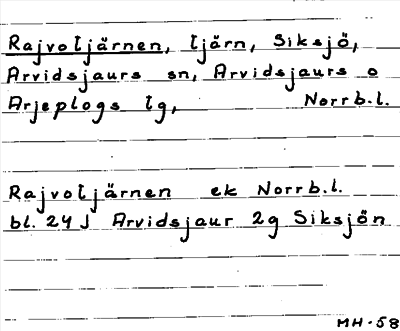 Rajvotjärnen, tjärn, Siksjö,
Arvidsjaurs sn, Arvidsjaurs o
Arjeplogs tg, Norrb.l.
Rajvotjärnen ek Norrb.l.
bl. 24 J Arvidsjaur 2g Siksjön
MH-58